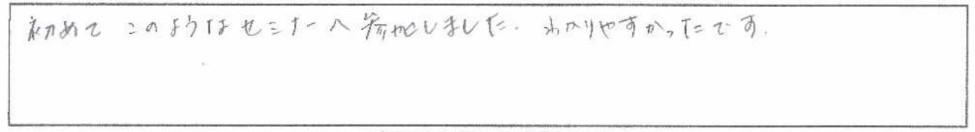 初めて このようなセミナーへ参加しました. わかりやすかったです.